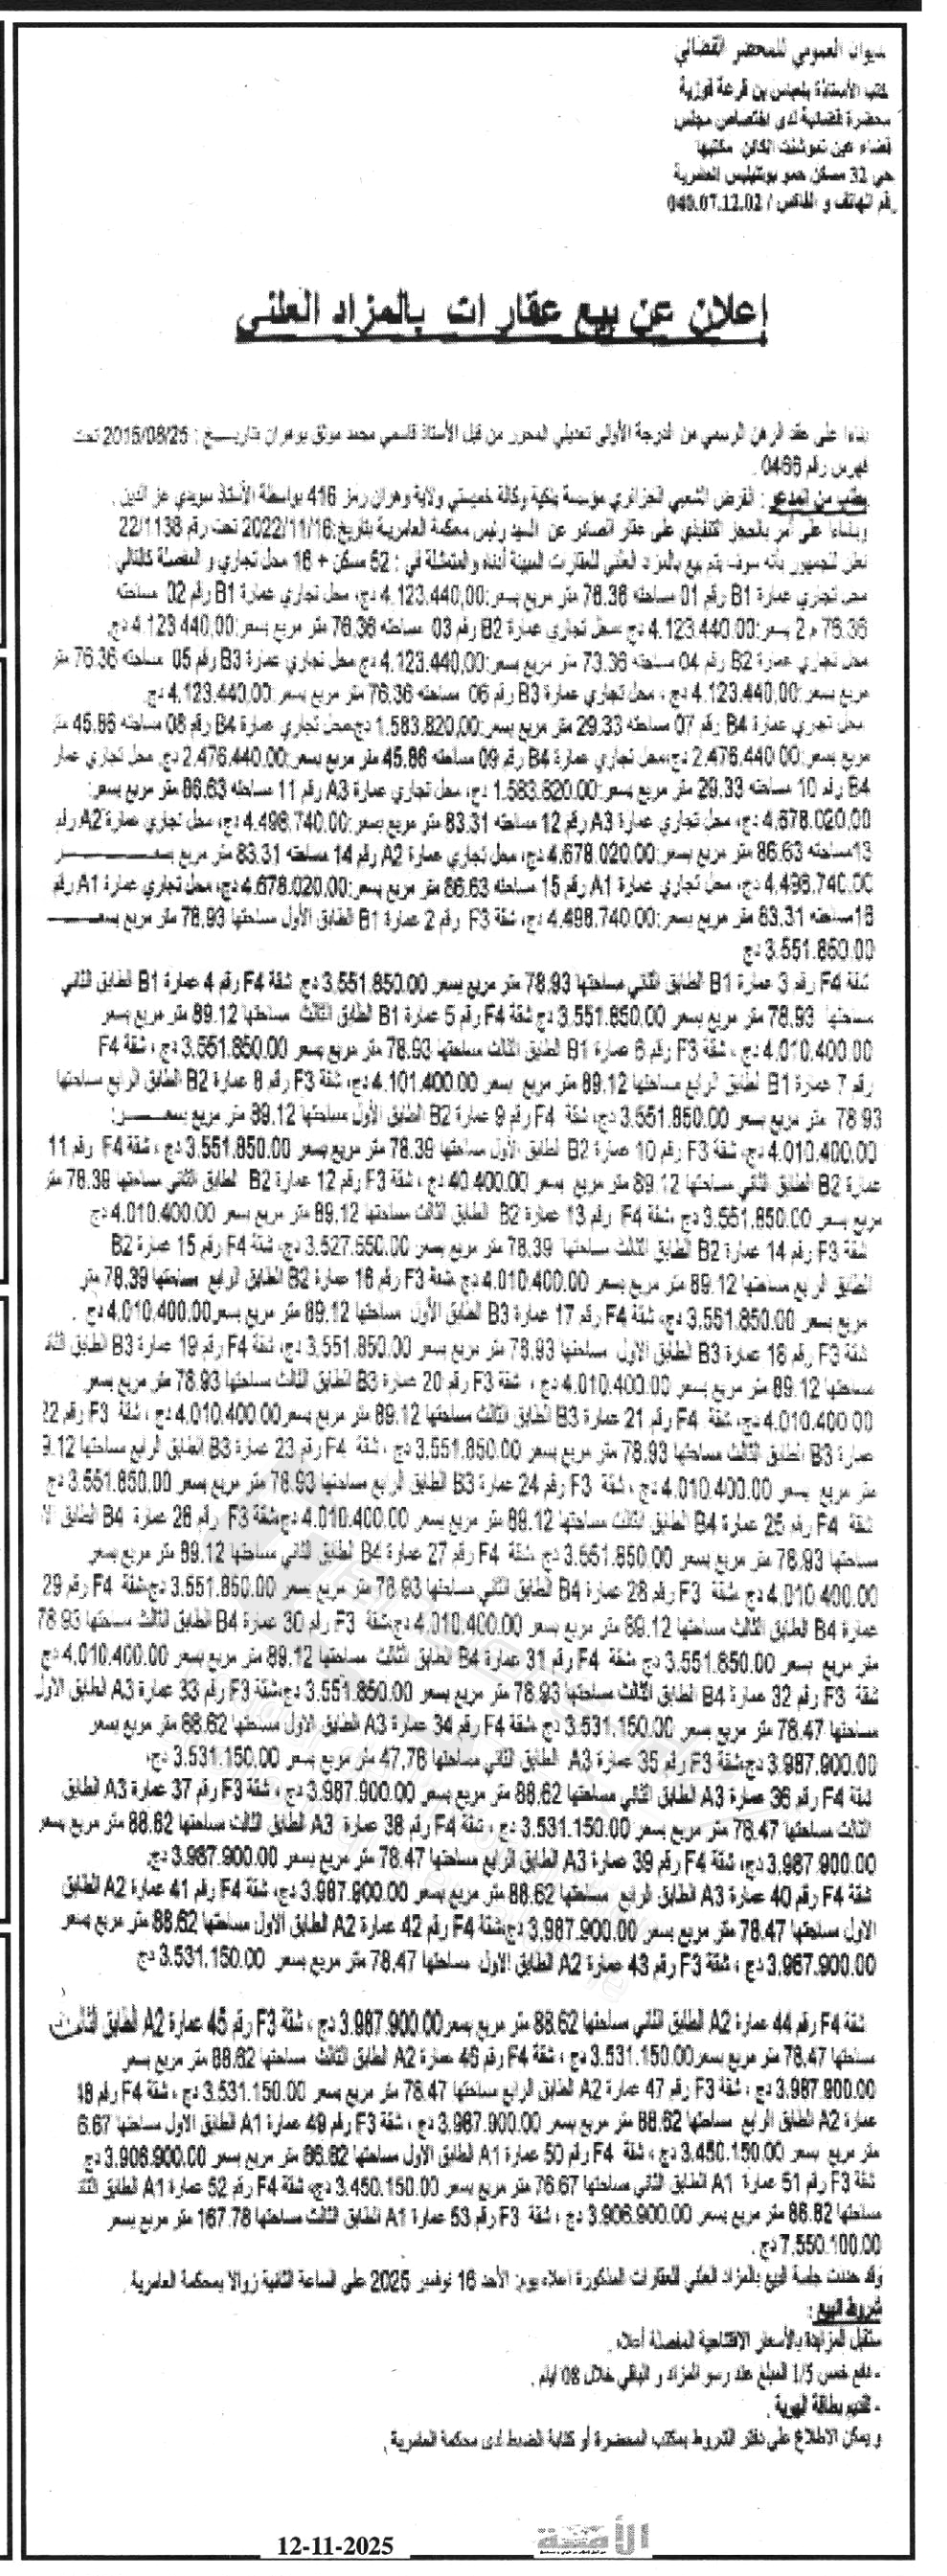 ديوان العمومي للمحضر القضائي
كتب الأستاذة بلعباس بن قرعة فوزية
محضرة قضائية لدى اختصاص مجلس
قضاء عين تموشنت الكائن مكتبها
حي 32 مسكن حمو بوتليليس العامرية
قم الهاتف و الفاكس / 040.07.12.02
إعلان عن بيع عقارات بالمزاد العلني
بناءا على عقد الرهن الرسمي من الدرجة الأولى تعديلي المحرر من قبل الأستاذ قاسمي محمد موثق بوهران بتاريخ : 2015/08/25 تحت
فهرس رقم 0466 .
بطلب من المدعو : القرض الشعبي الجزائري مؤسسة بنكية وكالة خميستي ولاية وهران رمز 416 بواسطة الأستاذ سويدي عز الدين .
وبناءا على أمر بالحجز التنفيذي على عقار الصادر عن السيد رئيس محكمة العامرية بتاريخ:2022/11/16 تحت رقم 22/1138
نعلن للجمهور بأنه سوف يتم بيع بالمزاد العلني للعقارات المبينة أدناه والمتمثلة في : 52 مسكن + 16 محل تجاري و المفصلة كالتالي :
محل تجاري عمارة B1 رقم 01 مساحته 76.36 متر مربع بسعر:4.123.440,00 دج، محل تجاري عمارة B1 رقم 02 مساحته
76.36 م 2 بسعر:4.123.440.00 دج محل تجاري عمارة B2 رقم 03 مساحته 76.36 متر مربع بسعر:4.123.440,00 دج،
محل تجاري عمارة B2 رقم 04 مساحته 73.36 متر مربع بسعر:4.123.440,00 دج محل تجاري عمارة B3 رقم 05 مساحته 76.36 متر
مربع بسعر:4.123.440.00 دج ، محل تجاري عمارة B3 رقم 06 مساحته 76.36 متر مربع بسعر:4.123.440.00 دج.
محل تجاري عمارة B4 رقم 07 مساحته 29.33 متر مربع بسعر:1.583.820,00 دج،محل تجاري عمارة B4 رقم 08 مساحته 45.86 متر
مربع بسعر:2.476.440.00 دج،محل تجاري عمارة B4 رقم 09 مساحته 45.86 متر مربع بسعر:2.476.440.00 دج، محل تجاري عمار
B4 رقم 10 مساحته 29.33 متر مربع بسعر:1.583.820.00 دج، محل تجاري عمارة A3 رقم 11 مساحته 86.63 متر مربع بسعر:
4.678.020,00 دج، محل تجاري عمارة A3 رقم 12 مساحته 83.31 متر مربع بسعر:4.498.740.00 دج، محل تجاري عمارة A2 رقم
13مساحته 86.63 متر مربع بسعر:4.678.020.00 دج، محل تجاري عمارة A2 رقم 14 مساحته 83.31 متر مربع بسعـــــر
4.498.740.00 دج، محل تجاري عمارة A1 رقم 15 مساحته 86.63 متر مربع بسعر:4.678.020.00 دج، محل تجاري عمارة A1 رقم
16مساحته 83.31 متر مربع بسعر:4.498.740.00 دج، شقة F3 رقم 2 عمارة B1 الطابق الأول مساحتها 78.93 متر مربع بسعـــــر
3.551.850.00 دج
شقة F4 رقم 3 عمارة B1 الطابق الثاني مساحتها 78.93 متر مربع بسعر 3.551.850.00 دج شقة F4 رقم 4 عمارة B1 الطابق الثاني
مساحتها 78.93 متر مربع بسعر 3.551.850.00 دج شقة F4 رقم 5 عمارة B1 الطابق الثالث مساحتها 89.12 متر مربع بسعر
4.010.400.00 دج ، شقة F3 رقم 6 عمارة B1 الطابق الثالث مساحتها 78.93 متر مربع بسعر 3.551.850.00 دج ، شقة F4
رقم 7 عمارة B1 لطابق الرابع مساحتها 89.12 متر مربع بسعر 4.101.400.00 دج، شقة F3 رقم 8 عمارة B2 الطابق الرابع مساحتها
78.93 متر مربع بسعر 3.551.850.00 دج، شقة F4 رقم 9 عمارة B2 الطابق الأول مساحتها 89.12 متر مربع بسعـــــر:
4.010.400.00 دج، شقة F3 رقم 10 عمارة B2 الطابق الأول مساحتها 78.39 متر مربع بسعر 3.551.850.00 دج ، شقة F4 رقم 11
عمارة B2 الطابق الثاني مساحتها 89.12 متر مربع بسعر 40.400.00 دج ، شقة F3 رقم 12 عمارة B2 لطابق الثاني مساحتها 78.39 متر
مربع بسعر 3.551.850.00 دج ،شقة F4 رقم 13 عمارة B2 الطابق الثالث مساحتها 89.12 متر مربع بسعر 4.010.400.00 دج
شقة F3 رقم 14 عمارة B2 الطابق الثالث مساحتها 78.39 متر مربع بسعر 3.527.550.00 دج، شقة F4 رقم 15 عمارة B2
الطابق الرابع مساحتها 89.12 متر مربع بسعر 4.010.400.00 دج شقة F3 رقم 16 عمارة B2 الطابق الرابع مساحتها 78.39 متر
مربع بسعر 3.551.850.00 دج، شقة F4 رقم 17 عمارة B3 الطابق الأول مساحتها 89.12 متر مربع بسعر4.010.400.00 دج .
شقة F3 رقم 18 عمارة B3 الطابق الاول مساحتها 78.93 متر مربع بسعر 3.551.850.00 دج، شقة F4 رقم 19 عمارة B3 الطابق الثان
مساحتها 89.12 متر مربع بسعر 4.010.400.00 دج ، شقة F3 رقم 20 عمارة B3 الطابق الثالث مساحتها 78.93 متر مربع بسعر
4.010.400.00 دج، شقة F4 رقم 21 عمارة B3 الطابق الثالث مساحتها 89.12 متر مربع بسعر4.010.400.00 دج ، شقة F3 رقم 22
عمارة B3 الطابق الثالث مساحتها 78.93 متر مربع بسعر 3.551.850.00 دج ، شقة F4 رقم 23 عمارة B3 الطابق الرابع مساحتها 9.12
متر مربع بسعر 4.010.400.00 دج ، شقة F3 رقم 24 عمارة B3 الطابق الرابع مساحتها 78.93 متر مربع بسعر 3.551.850.00 دج
شقة F4 رقم 25 عمارة B4 الطابق الثالث مساحتها 89.12 متر مربع بسعر 4.010.400.00 دج،شقة F3 رقم 26 عمارة B4 الطابق الا
مساحتها 78.93 متر مربع بسعر 3.551.850.00 دج شقة F4 رقم 27 عمارة B4 لطابق الثاني مساحتها 89.12 متر مربع بسعر
4.010.400.00 دج شقة F3 رقم 28 عمارة B4 الطابق الثاني مساحتها 78.93 متر مربع بسعر 3.551.850.00 دج،شقة F4 رقم 29
عمارة B4 الطابق الثالث مساحتها 89.12 متر مربع بسعر 4.010.400.00 دج،شقة F3 رقم 30 عمارة B4 الطابق الثالث مساحتها 78.93
متر مربع بسعر 3.551.850.00 دج شقة F4 رقم 31 عمارة B4 الطابق الثالث مساحتها 89.12 متر مربع بسعر 4.010.400.00 دج
شقة F3 رقم 32 عمارة B4 الطابق الثالث مساحتها 78.93 متر مربع بسعر 3.551.850.00 دج،شقة F3 رقم 33 عمارة A3 الطابق الاول
مساحتها 78.47 متر مربع بسعر 3.531.150.00 دج شقة F4 رقم 34 عمارة A3 الطابق الاول مساحتها 88.62 متر مربع بسعر
3.987.900.00 دج،شقة F3 رقم 35 عمارة A3 الطابق الثاني مساحتها 47.78 متر مربع بسعر 3.531.150.00 دج،
شقة F4 رقم 36 عمارة A3 الطابق الثاني مساحتها 88.62 متر مربع بسعر 3.987.900.00 دج ، شقة F3 رقم 37 عمارة A3 الطابق
الثالث مساحتها 78.47 متر مربع بسعر 3.531.150.00 دج ، شقة F4 رقم 38 عمارة A3 الطابق الثالث مساحتها 88.62 متر مربع بسعر
3.987.900.00 دج، شقة F4 رقم 39 عمارة A3 الطابق الرابع مساحتها 78.47 متر مربع بسعر 3.987.900.00 دج،
شقة F4 رقم 40 عمارة A3 الطابق الرابع مساحتها 88.62 متر مربع بسعر 3.987.900.00 دج، شقة F4 رقم 41 عمارة A2 الطابق
الاول مساحتها 78.47 متر مربع بسعر 3.987.900.00 دج،شقة F4 رقم 42 عمارة A2 الطابق الاول مساحتها 88.62 متر مربع بسعر
3.987.900.00 دج ، شقة F3 رقم 43 عمارة A2 الطابق الاول مساحتها 78.47 متر مربع بسعر 3.531.150.00 دج
شقة F4 رقم 44 عمارة A2 الطابق الثاني مساحتها 88.62 متر مربع بسعر3.987.900.00 دج ، شقة F3 رقم 45 عمارة A2 الطابق الثالث
مساحتها 78.47 متر مربع بسعر3.531.150.00 دج ، شقة F4 رقم 46 عمارة A2 الطابق الثالث مساحتها 88.62 متر مربع بسعر
3.987.900.00 دج ، شقة F3 رقم 47 عمارة A2 الطابق الرابع مساحتها 78.47 متر مربع بسعر 3.531.150.00 دج ، شقة F4 رقم 48
عمارة A2 الطابق الرابع مساحتها 88.62 متر مربع بسعر 3.987.900.00 دج ، شقة F3 رقم 49 عمارة A1 الطابق الاول مساحتها 6.67
متر مربع بسعر 3.450.150.00 دج ، شقة F4 رقم 50 عمارة A1 الطابق الاول مساحتها 86.82 متر مربع بسعر 3.906.900.00 دج
شقة F3 رقم 51 عمارة A1 الطابق الثاني مساحتها 76.67 متر مربع بسعر 3.450.150.00 دج، شقة F4 رقم 52 عمارة A1 الطابق الثا
مساحتها 86.82 متر مربع بسعر 3.906.900.00 دج ، شقة F3 رقم 53 عمارة A1 الطابق الثالث مساحتها 167.78 متر مربع بسعر
7.550.100.00 دج .
وقد حددت جلسة البيع بالمزاد العلني للعقارات المذكورة اعلاه يوم: الأحد 16 نوفمبر 2025 على الساعة الثانية زوالا بمحكمة العامرية .
شروط البيع :
ستقبل المزايدة بالأسعار الافتتاحية المفصلة أعلاه .
- دفع خمس 1/5 المبلغ عند رسو المزاد و الباقي خلال 08 ايام .
- تقديم بطاقة الهوية .
و يمكن الاطلاع على دفتر الشروط بمكتب المحضرة أو كتابة الضبط لدى محكمة العامرية .
12-11-2025
الأمة